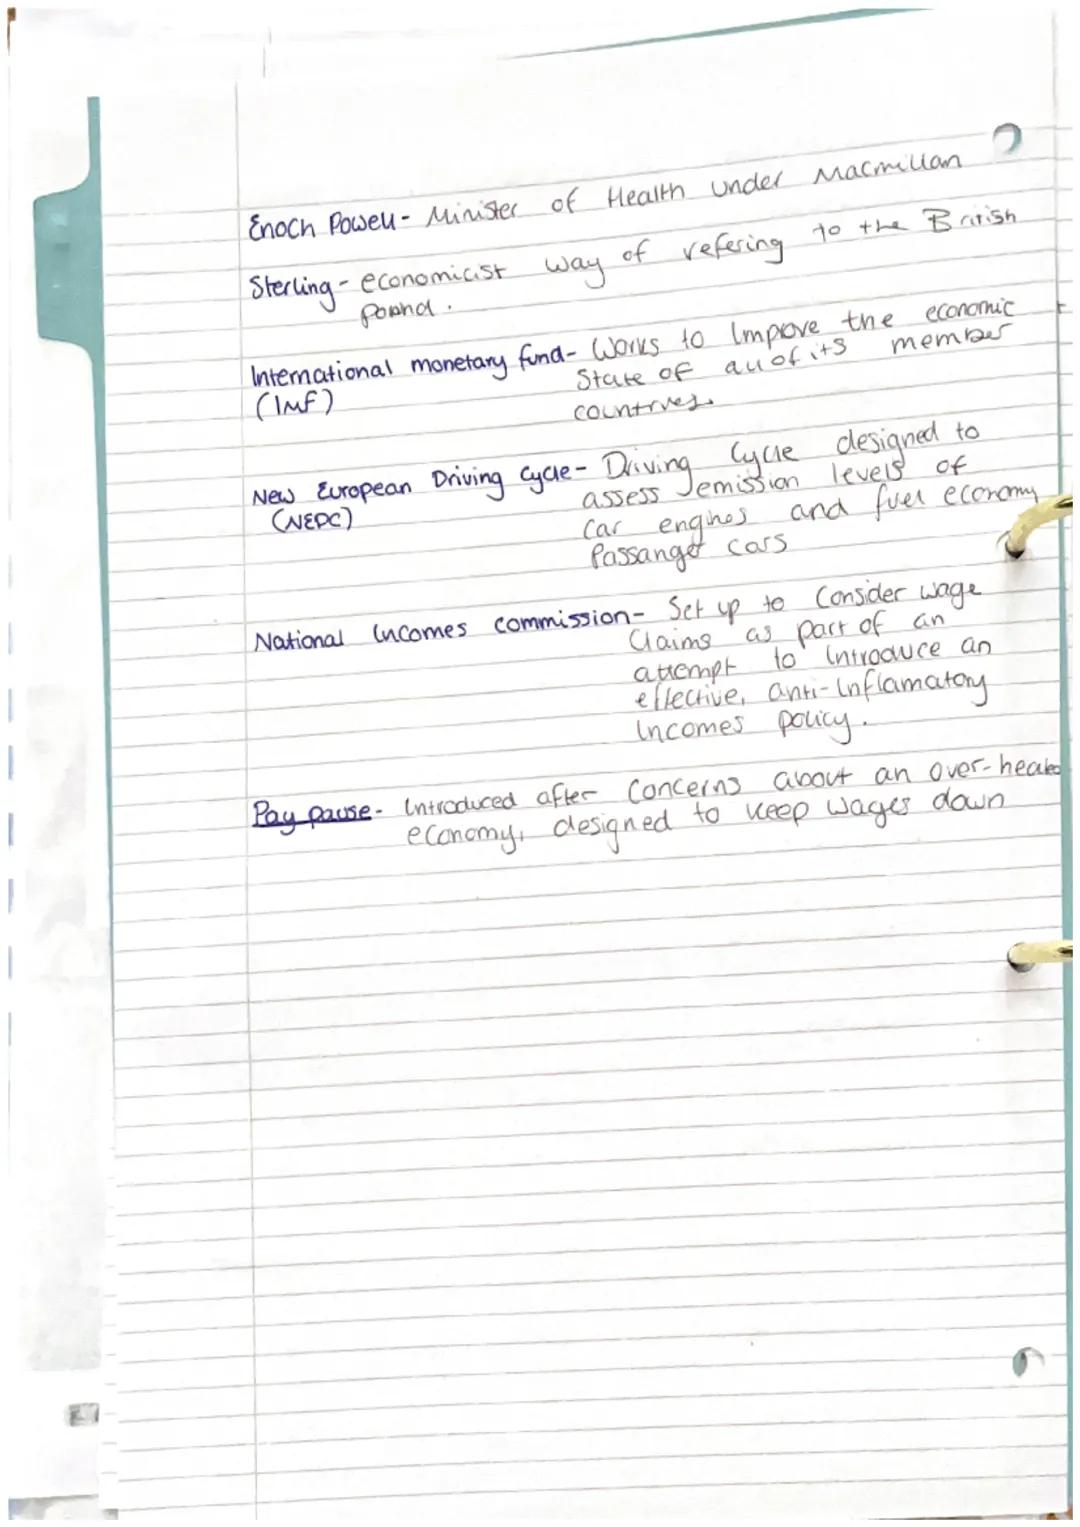 Enoch Powell - Minister of Health under Macmillan
Sterling - economicist way of refering to the British
pound.
International monetary fund - Works to improve the economic
(IMF) State of all of its member
countries.
New European Driving Cycle - Driving Cycle designed to
(NEDC) assess emission levels of
car engines and fuel economy
Passanger cars
National incomes commission - Set up to consider wage
Claims as part of an
attempt to introduce an
effective, anti-inflamatory
incomes policy.
Pay pause - Introduced after concerns about an over-heated
economy, designed to keep wages down